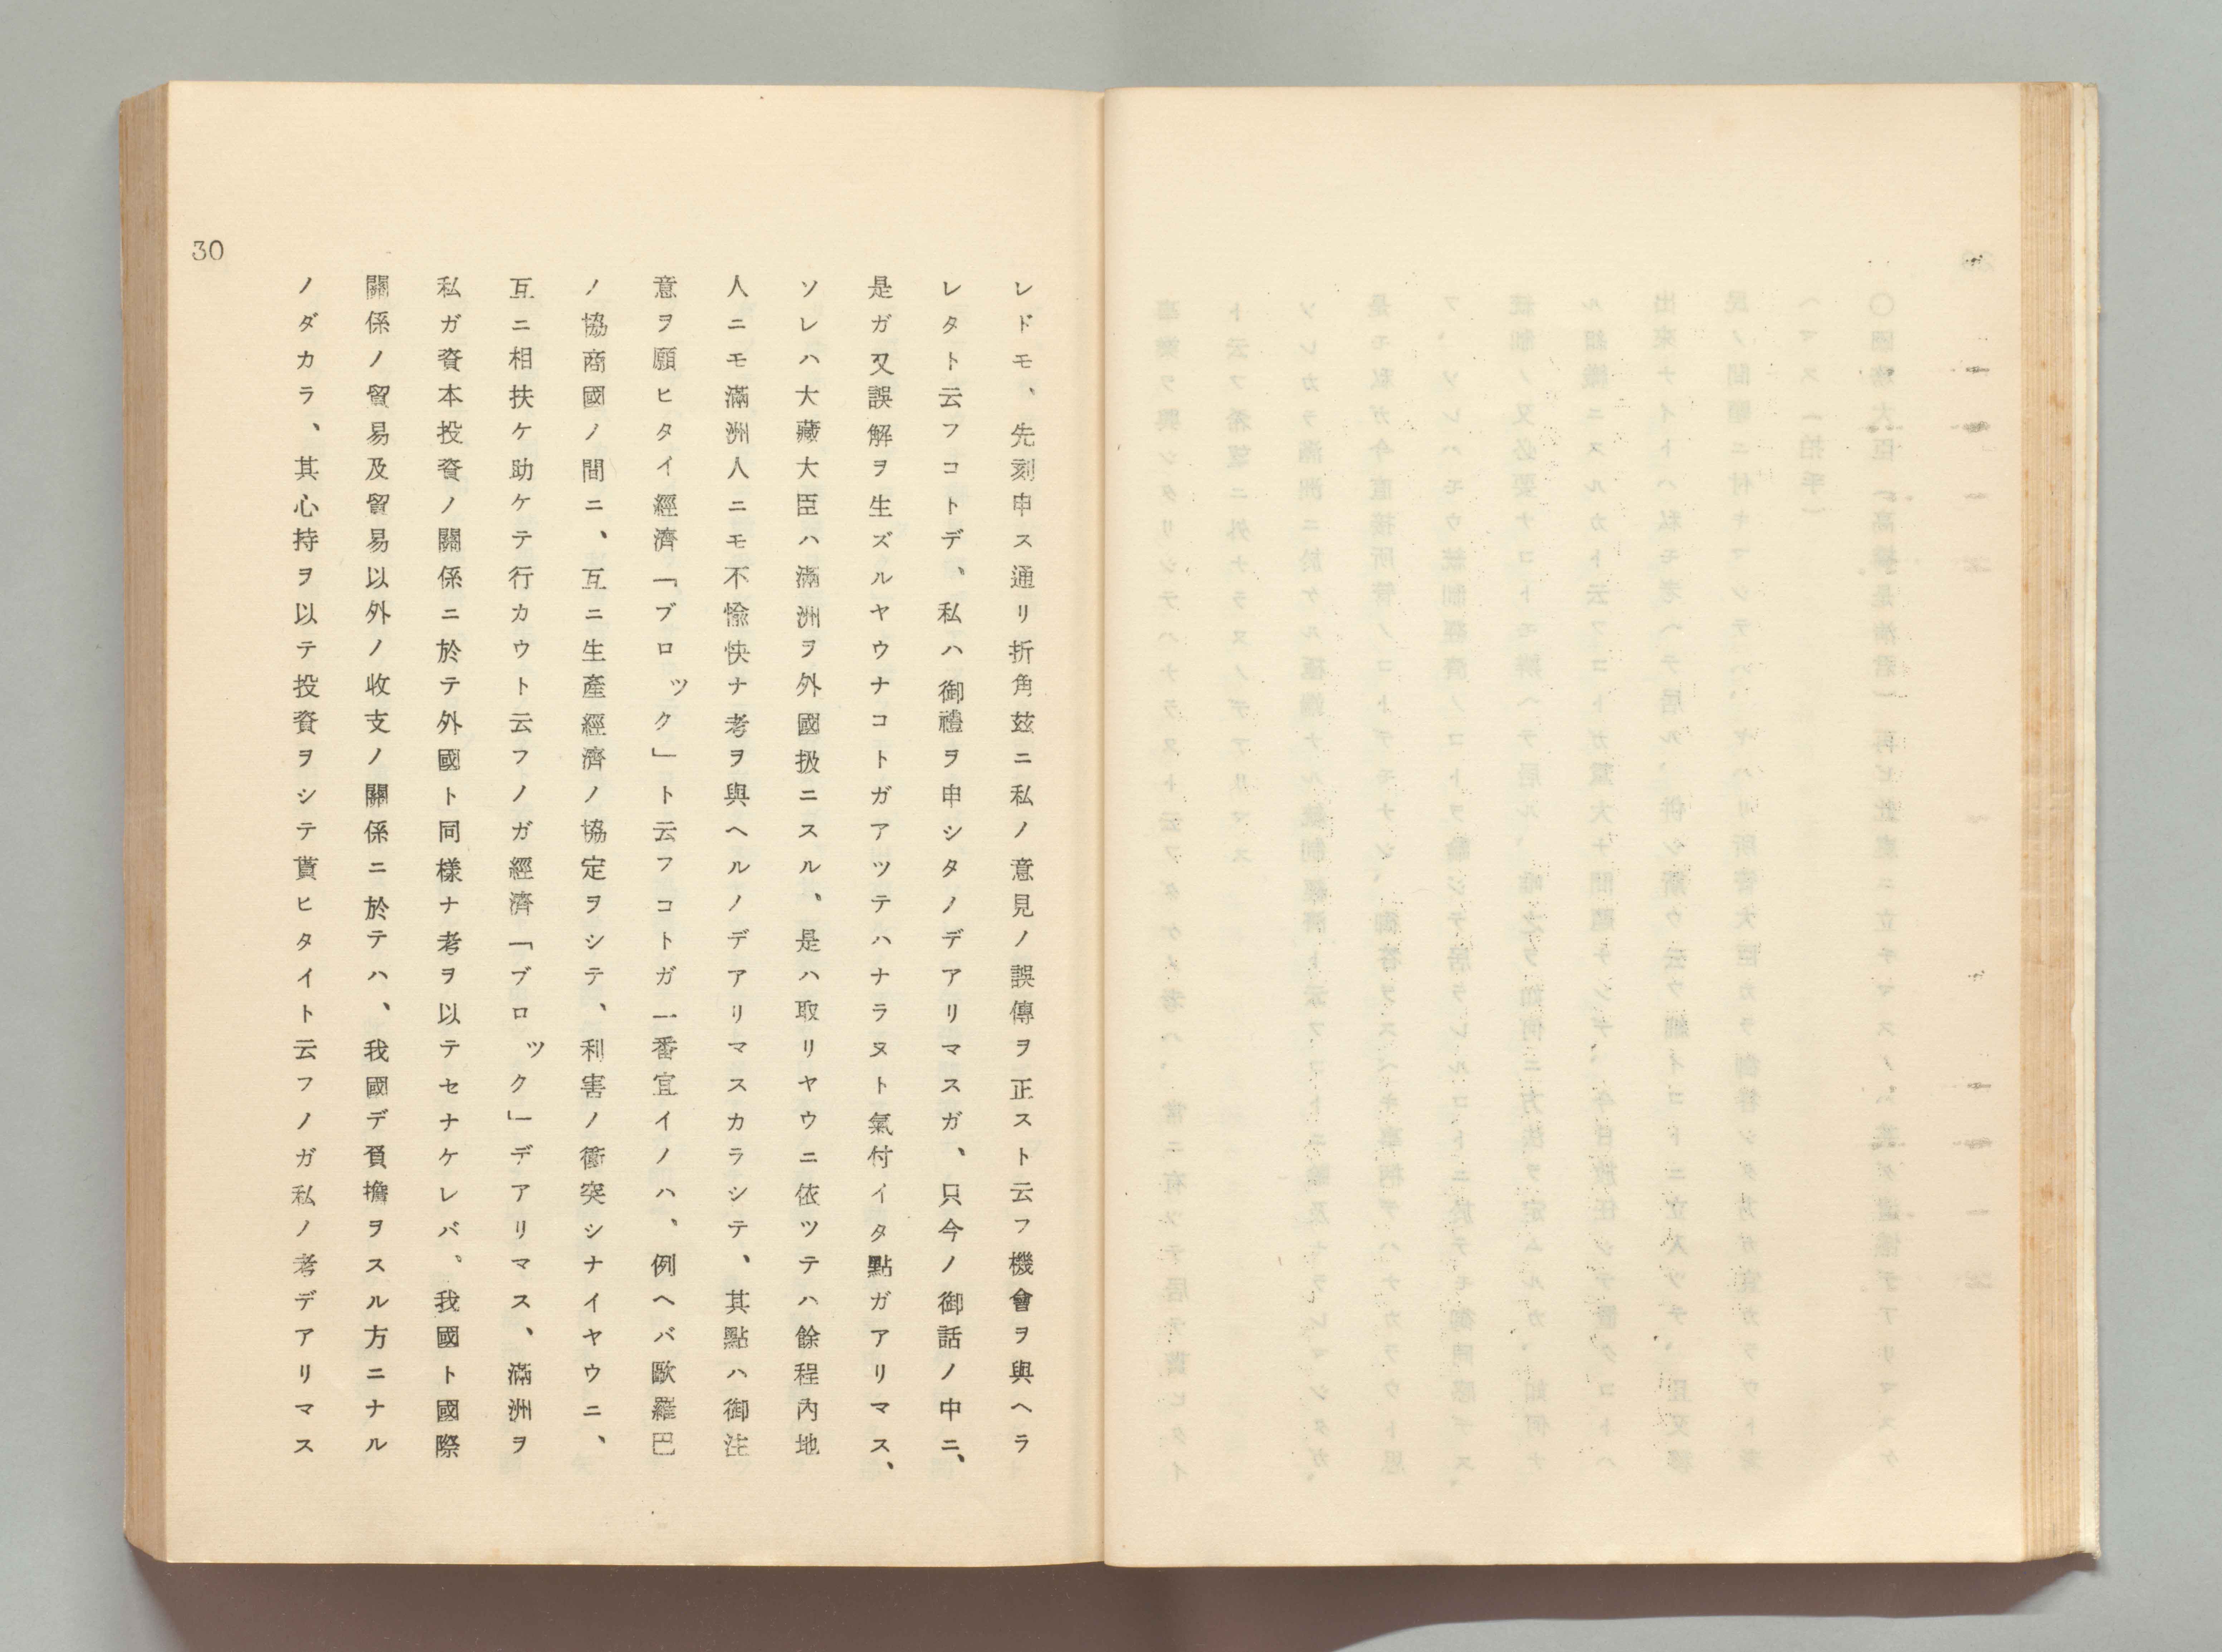 レドモ、先刻申ス通リ折角玆ニ私ノ意見ノ誤傳ヲ正スト云フ機會ヲ與ヘラ
レタト云フコトデ、私ハ御禮ヲ申シタノデアリマスガ、只今ノ御話ノ中ニ、
是ガ又誤解ヲ生ズルヤウナコトガアツテハナラヌト氣付イタ點ガアリマス、
ソレハ大藏大臣ハ滿洲ヲ外國扱ニスル、是ハ取リヤウニ依ツテハ餘程內地
人ニモ滿洲人ニモ不愉快ナ考ヲ與ヘルノデアリマスカラシテ、其點ハ御注
意ヲ願ヒタイ經濟「ブロツク」ト云フコトガ一番宜イノハ、例ヘバ歐羅巴
ノ協商國ノ間ニ、互ニ生產經濟ノ協定ヲシテ、利害ノ衝突シナイヤウニ、
互ニ相扶ケ助ケテ行カウト云フノガ經濟「ブロツク」デアリマス、滿洲ヲ
私ガ資本投資ノ關係ニ於テ外國ト同樣ナ考ヲ以テセナケレバ、我國ト國際
關係ノ貿易及貿易以外ノ收支ノ關係ニ於テハ、我國デ負擔ヲスル方ニナル
ノダカラ、其心持ヲ以テ投資ヲシテ貰ヒタイト云フノガ私ノ考デアリマス
30